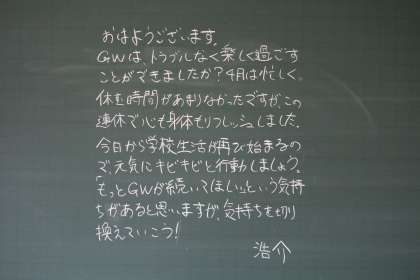 おはようございます。
GWは、トラブルなく楽しく過ごす
ことができましたか?4月は忙しく。
休む時間があまりなかったですが、この
連休で心も身体もリフレッシュしました。
今日から学校生活が再び始まるの
で、元気にキビキビと行動しましょう。
「もっとGWが続いてほしい」という気持
ちがあると思いますが、気持ちを切り
換えていこう!
浩介